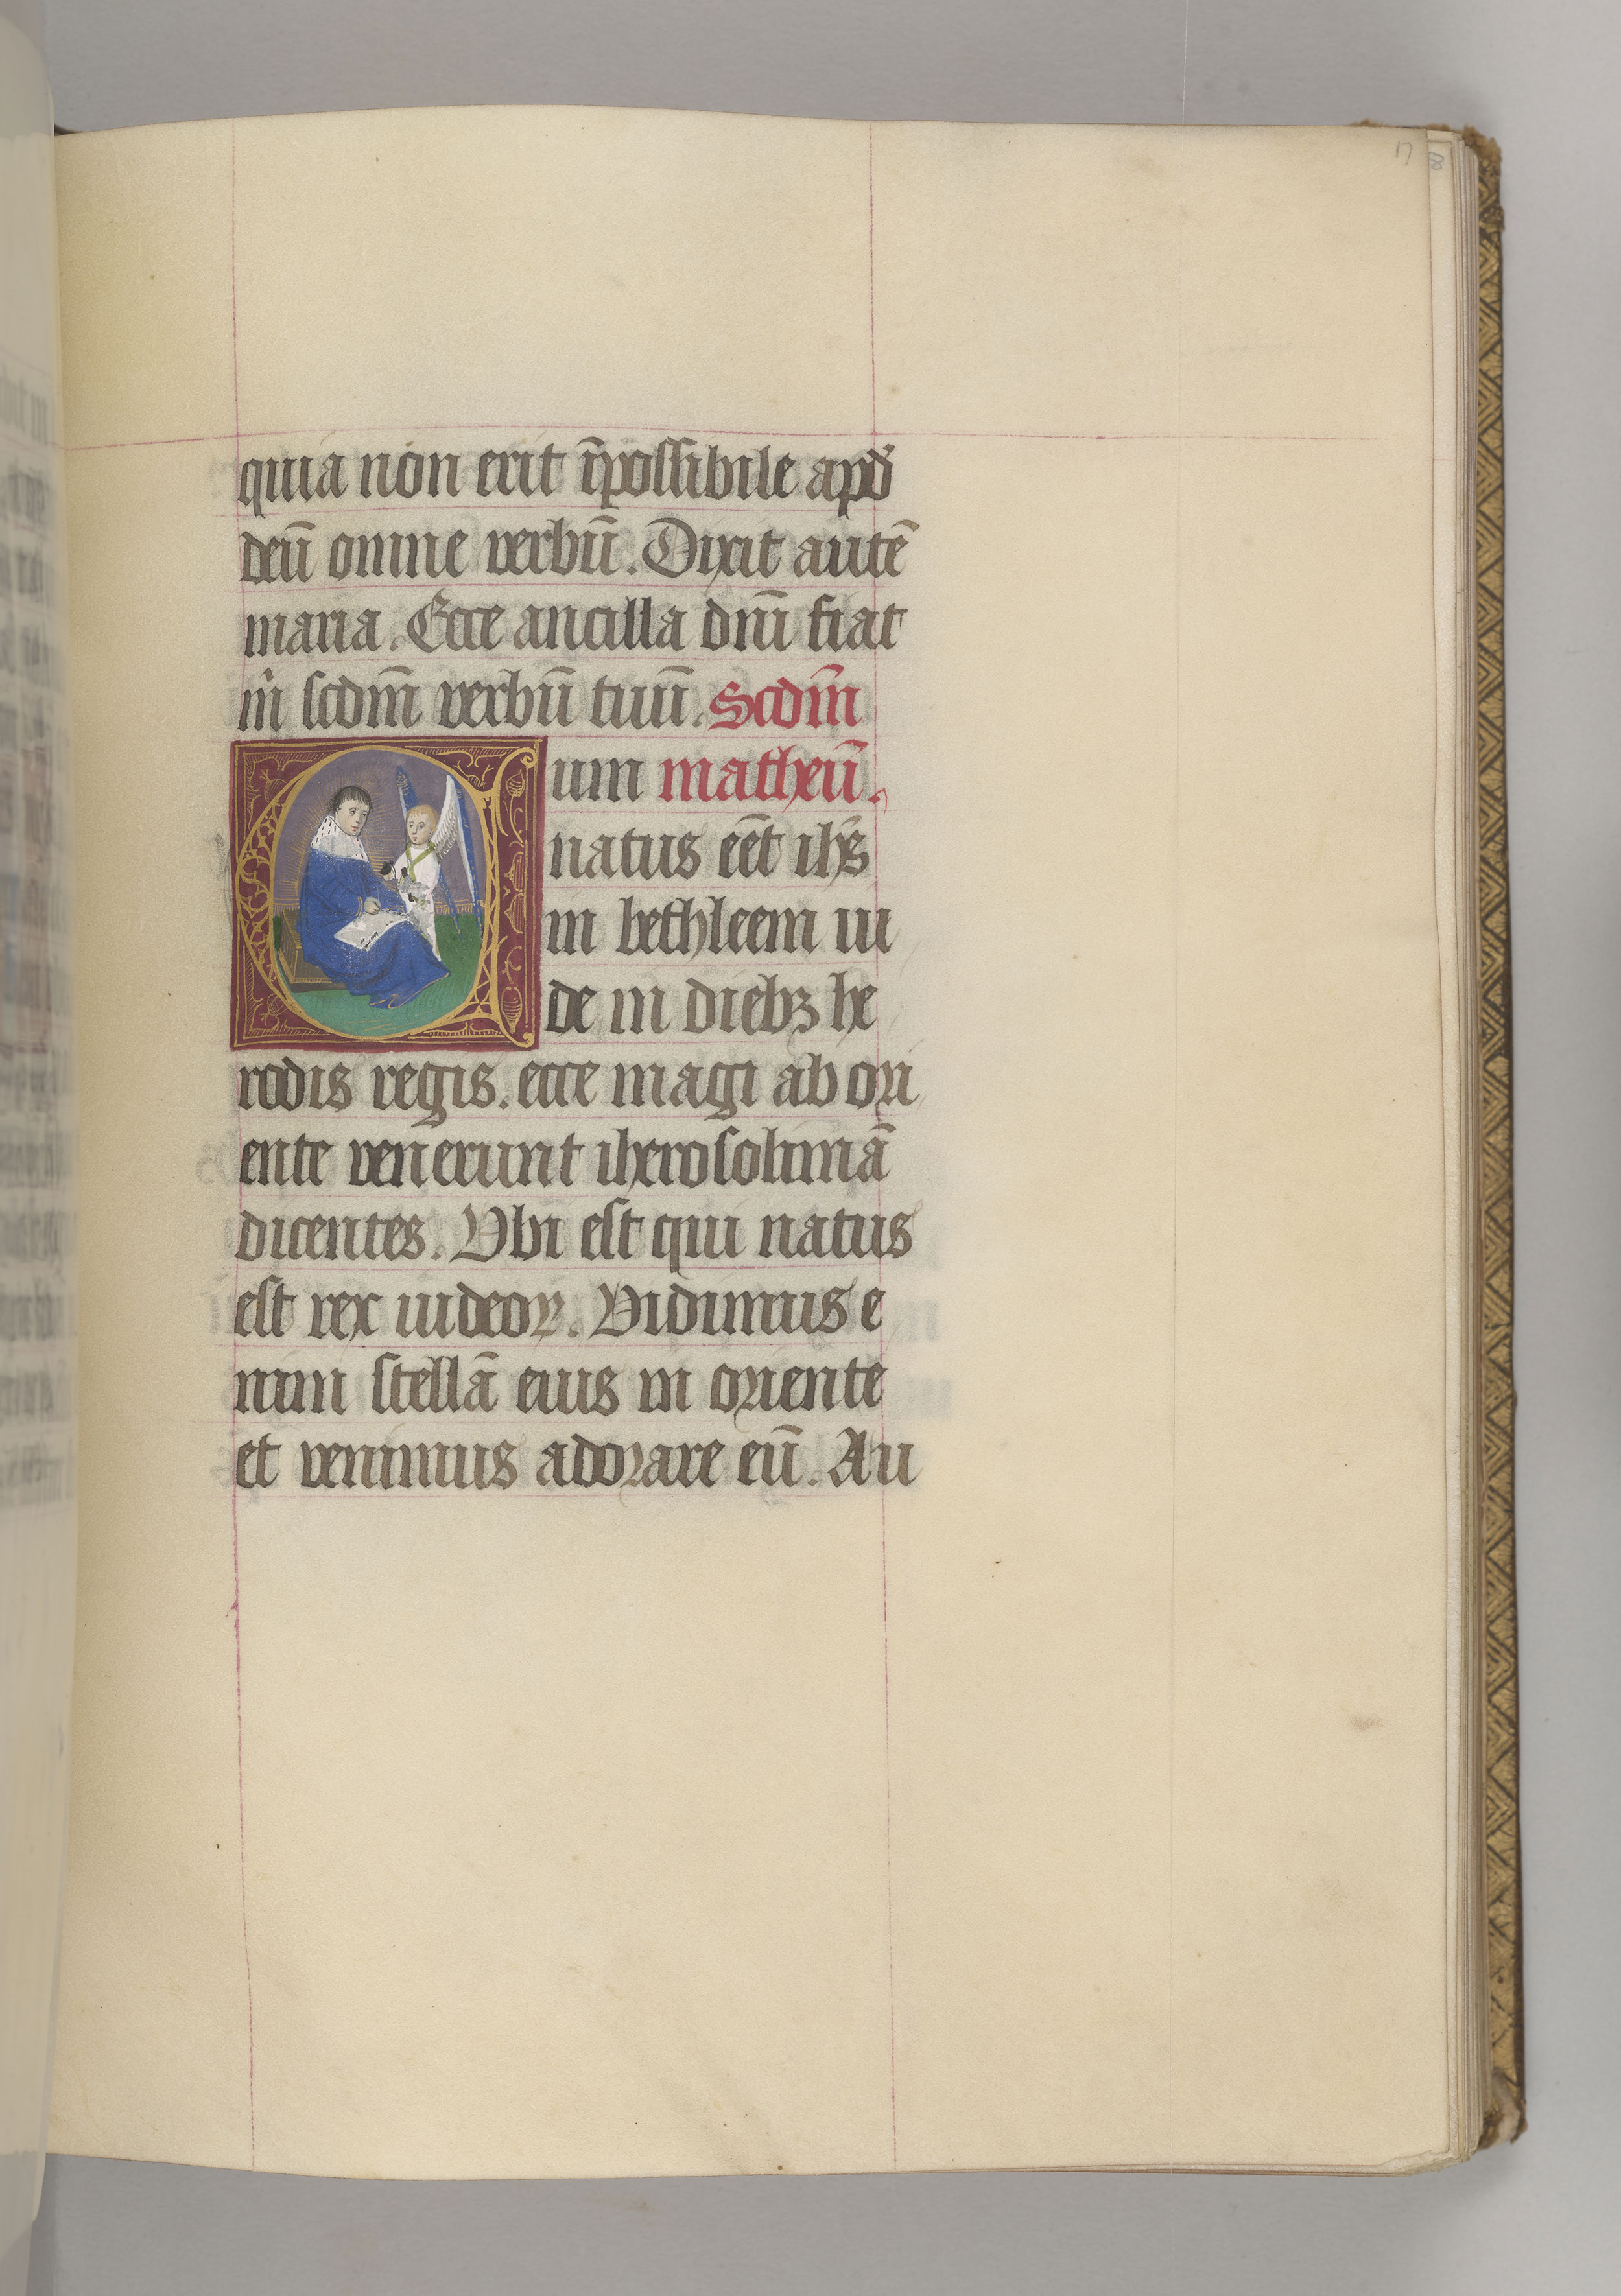 17
quia non erit īpossibile apd̄
deū omne verbū. Dixit autē
maria. Ecce ancilla dn̄i fiat
m̄ scdm̄ verbū tuū. Scdm̄
Cum matheū.
natus eēt ih̄s
in bethleem iu
de in diebꝫ he
rodis regis. ecce magi ab ori
ente venerunt iherosolimā
dicentes. Vbi est qui natus
est rex iudeoꝝ. Vidimus e
nim stellā eius in oriente
et venimus adorare eū. Au